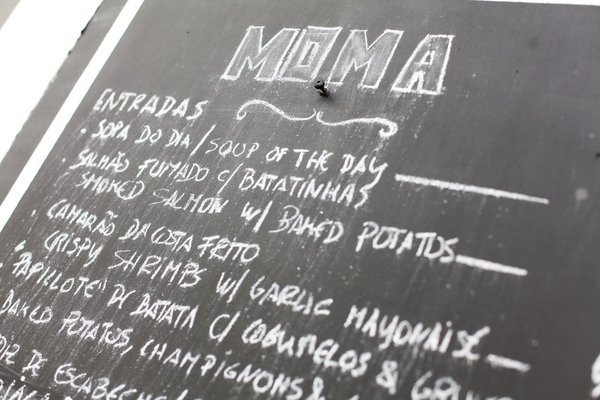 MOMA
ENTRADAS
• SOPA DO DIA / SOUP OF THE DAY
• SALMÃO FUMADO C/ BATATINHAS
SMOKED SALMON W/ BAKED POTATOS
• CAMARÃO DA COSTA FRITO
CRISPY SHRIMPS W/ GARLIC MAYONAISE
• PAPILLOTE DE BATATA C/ COGUMELOS &
BAKED POTATOS, CHAMPIGNONS &
DE ESCABECHE